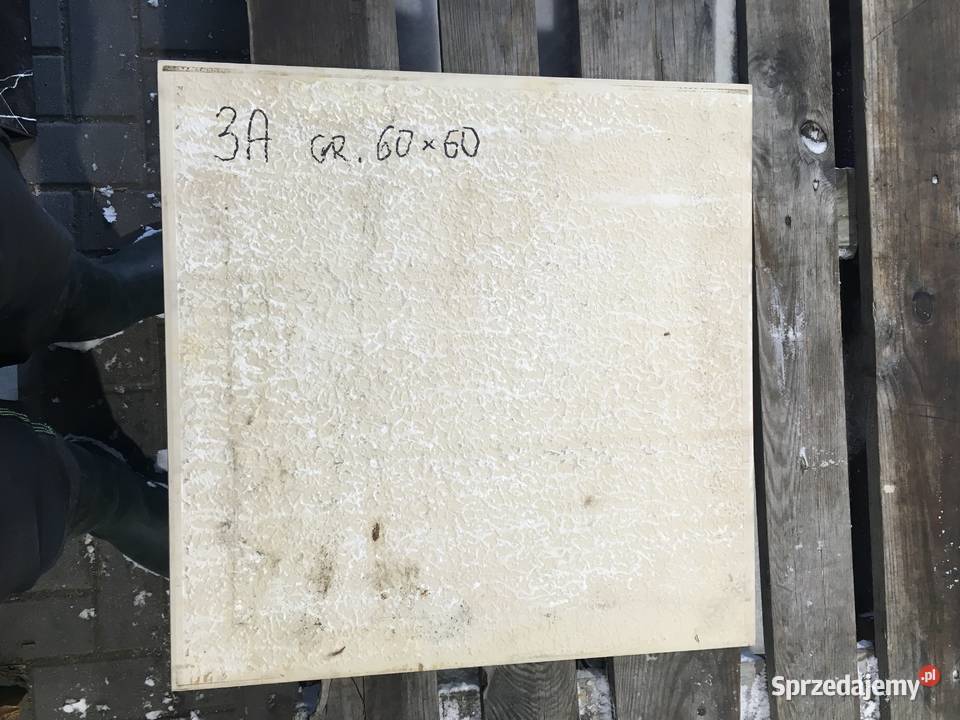 3A GR. 60×60
Sprzedajemy.pl